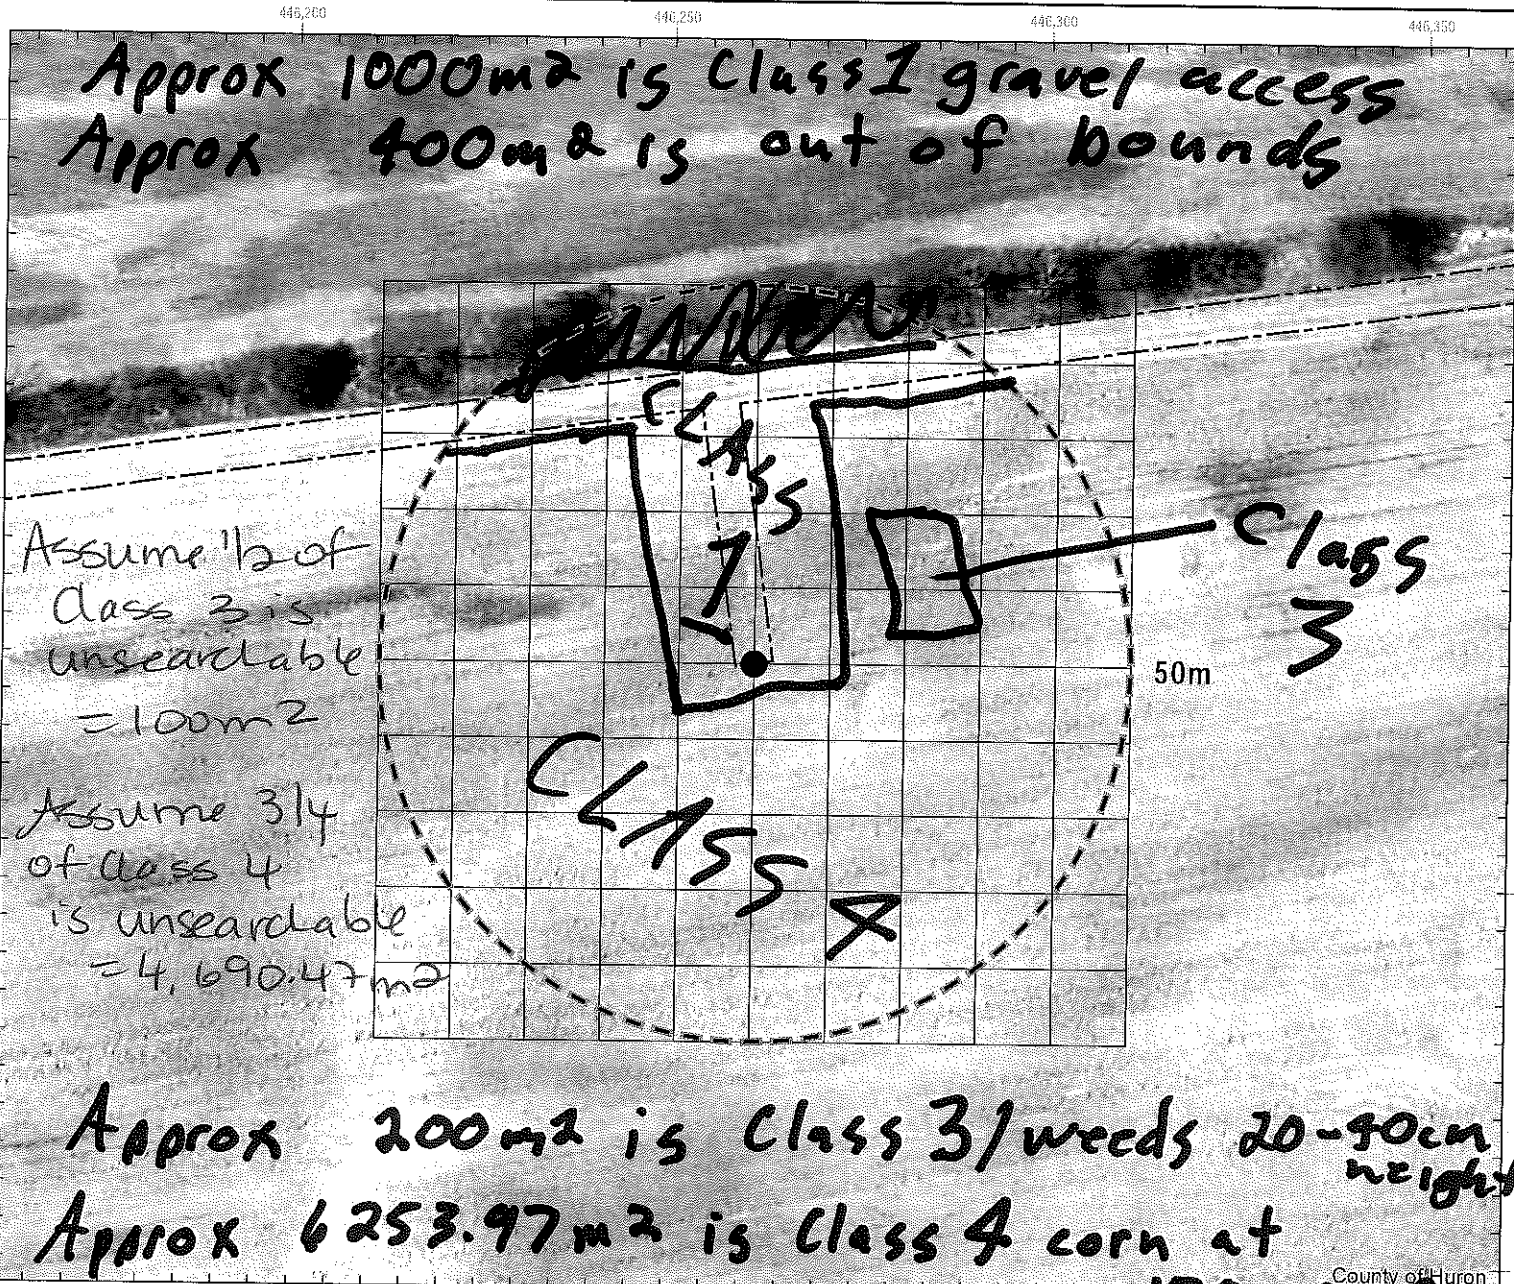 446,200 446,250 446,300 446,350
Approx 1000m2 is Class 1 gravel access
Approx 400m2 is out of bounds
CLASS
1
Class
3
50m
Assume 1/2 of
Class 3 is
unsearchable
=100m2
CLASS 4
Assume 3/4
of Class 4
is unsearchable
=4,690.47m2
Approx 200m2 is Class 3/weeds 20-40cm
height
Approx 6253.97m2 is Class 4 corn at
County of Huron